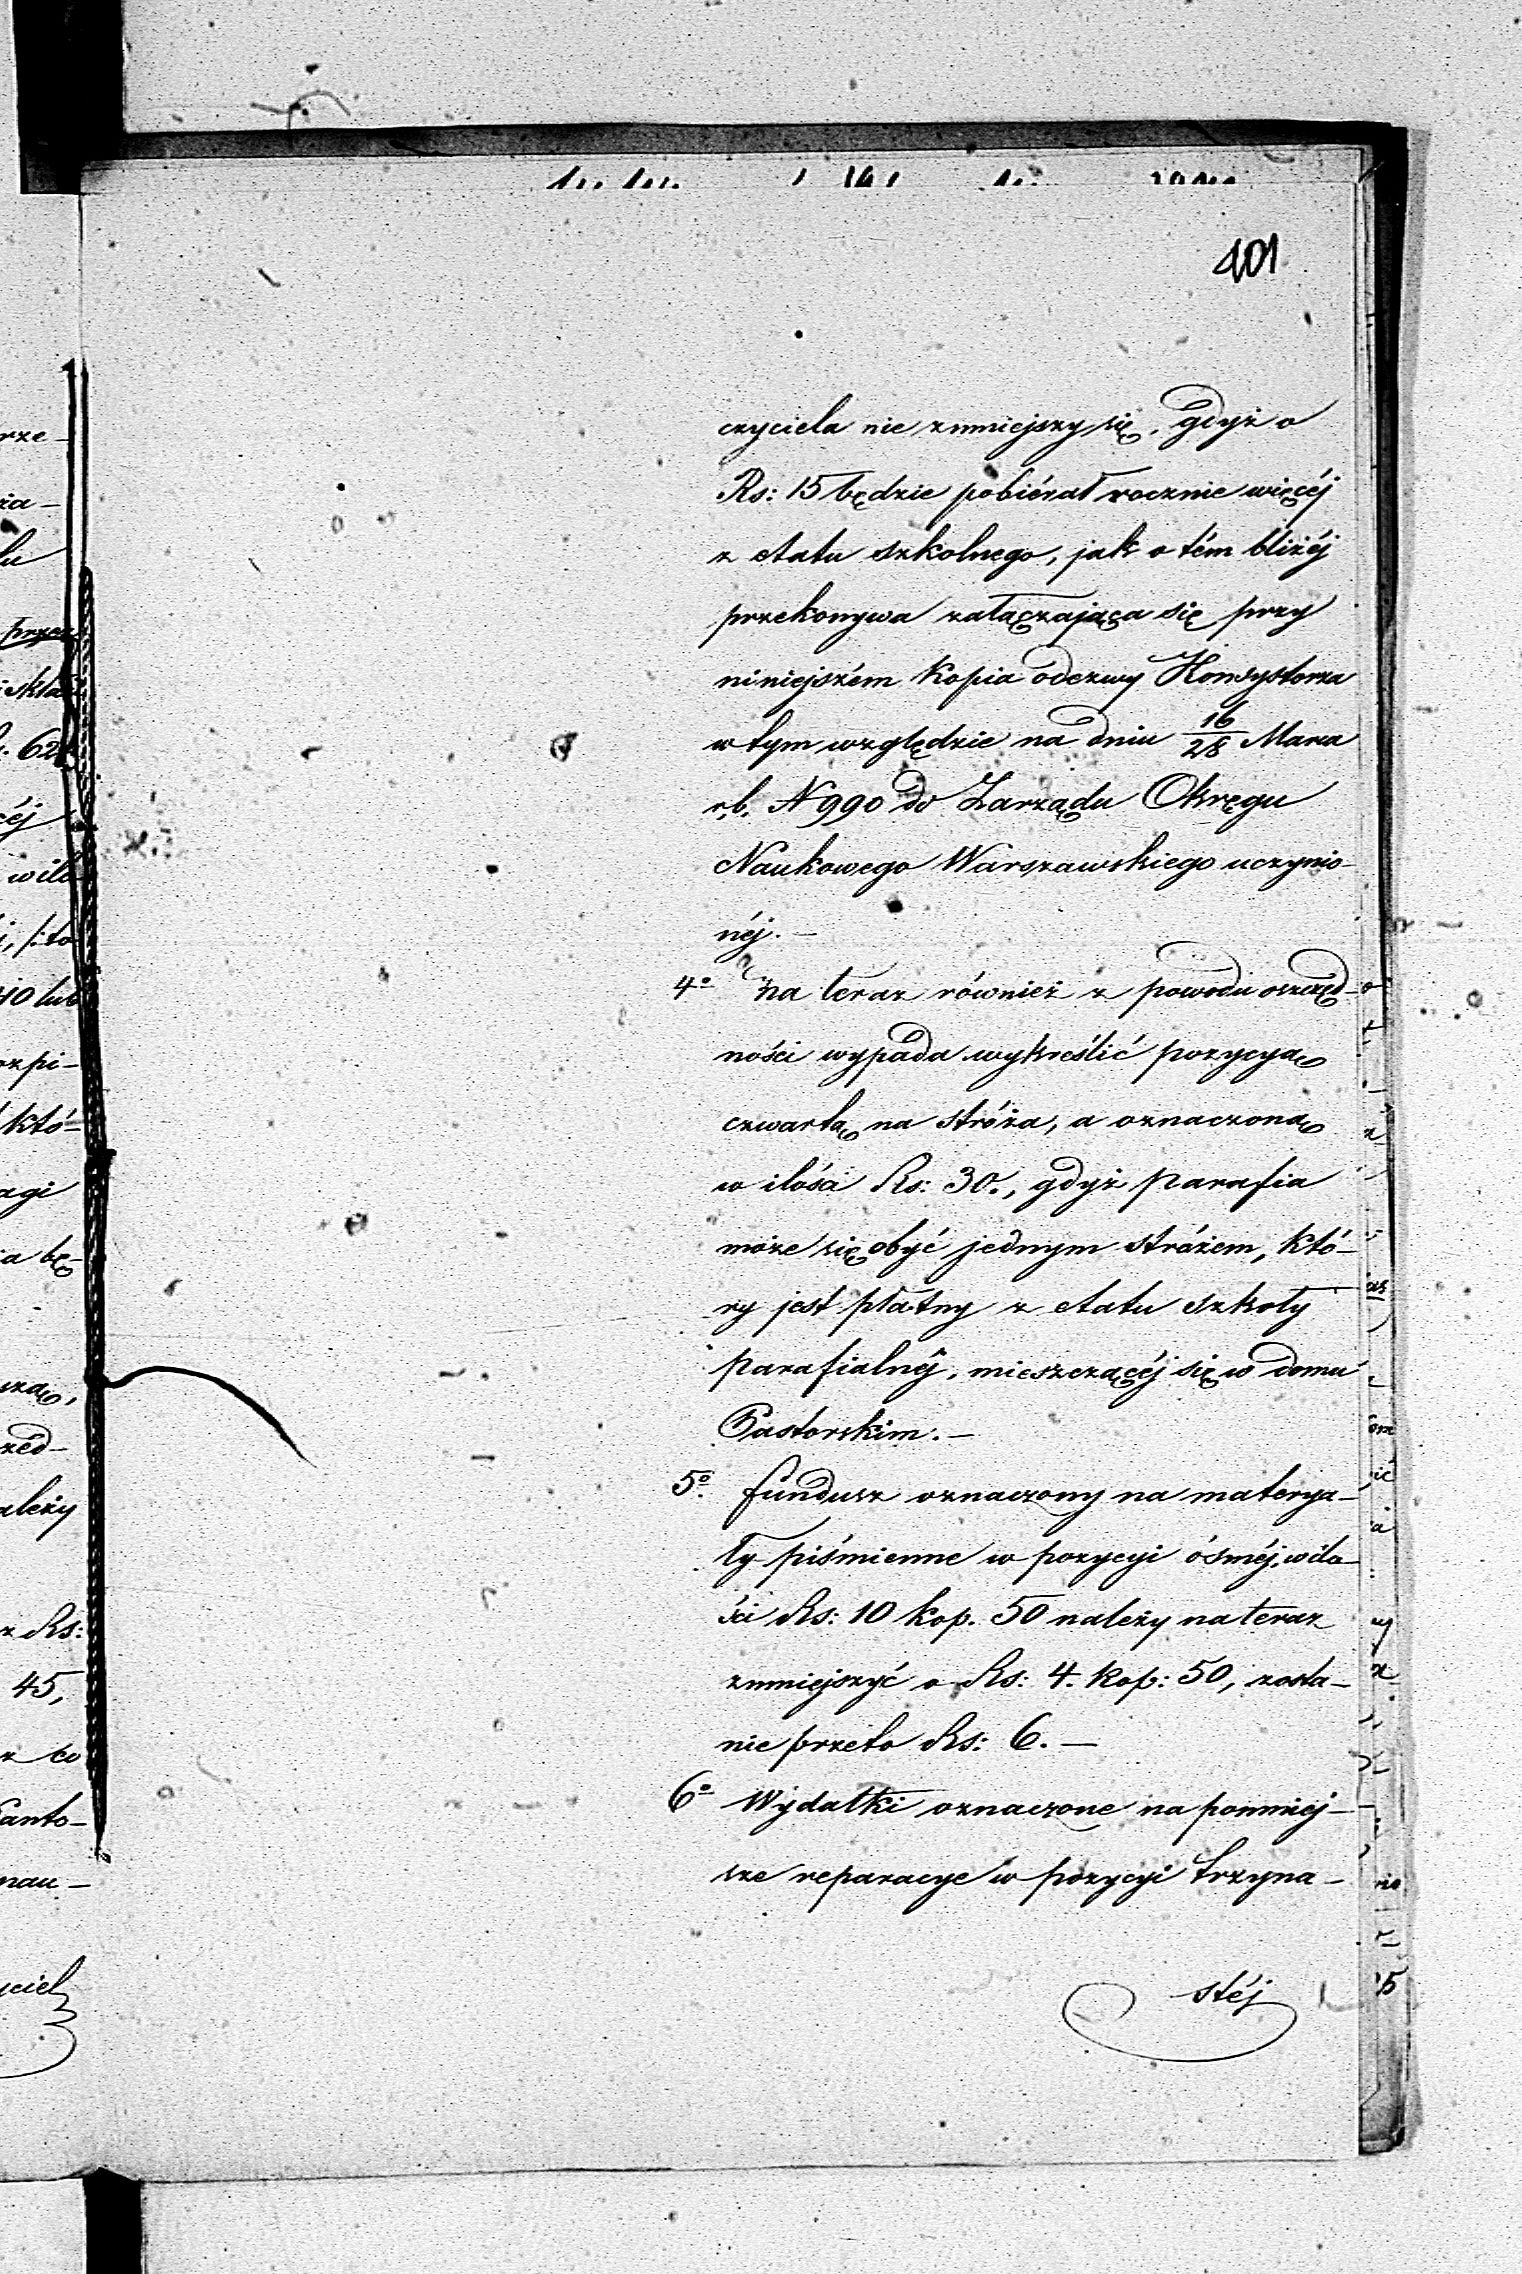 401
czyciela nie zmniejszy się, gdyż o
Rs: 15 będzie pobiérał rocznie więcéj
z etatu szkolnego, jak o tém bliżéj
przekonywa załączająca się przy
niniejszém kopia odezwy Konsystorza
w tym względzie na dniu 16/28 Marca
r.b. N 990 do Zarządu Okręgu
Naukowego Warszawskiego uczynio-
néj. —
4° Na teraz również z powodu oszczęd-
ności wypada wykreślić pozycyą
czwartą na stróża, a oznaczoną
w ilości Rs: 30., gdyż parafia
może się obyć jednym stróżem, któ-
ry jest płatny z etatu szkoły
parafialnéj, mieszczącéj się w domu
Pastorskim. —
5° Fundusz oznaczony na materya-
ły piśmienne w pozycyi ósméj, w ilo-
ści Rs: 10 kop. 50 należy na teraz
zmniejszyć o Rs: 4. kop: 50, zosta-
nie przeto Rs: 6. —
6° Wydatki oznaczone na pomniej-
sze reparacye w pozycyi trzyna-
stéj